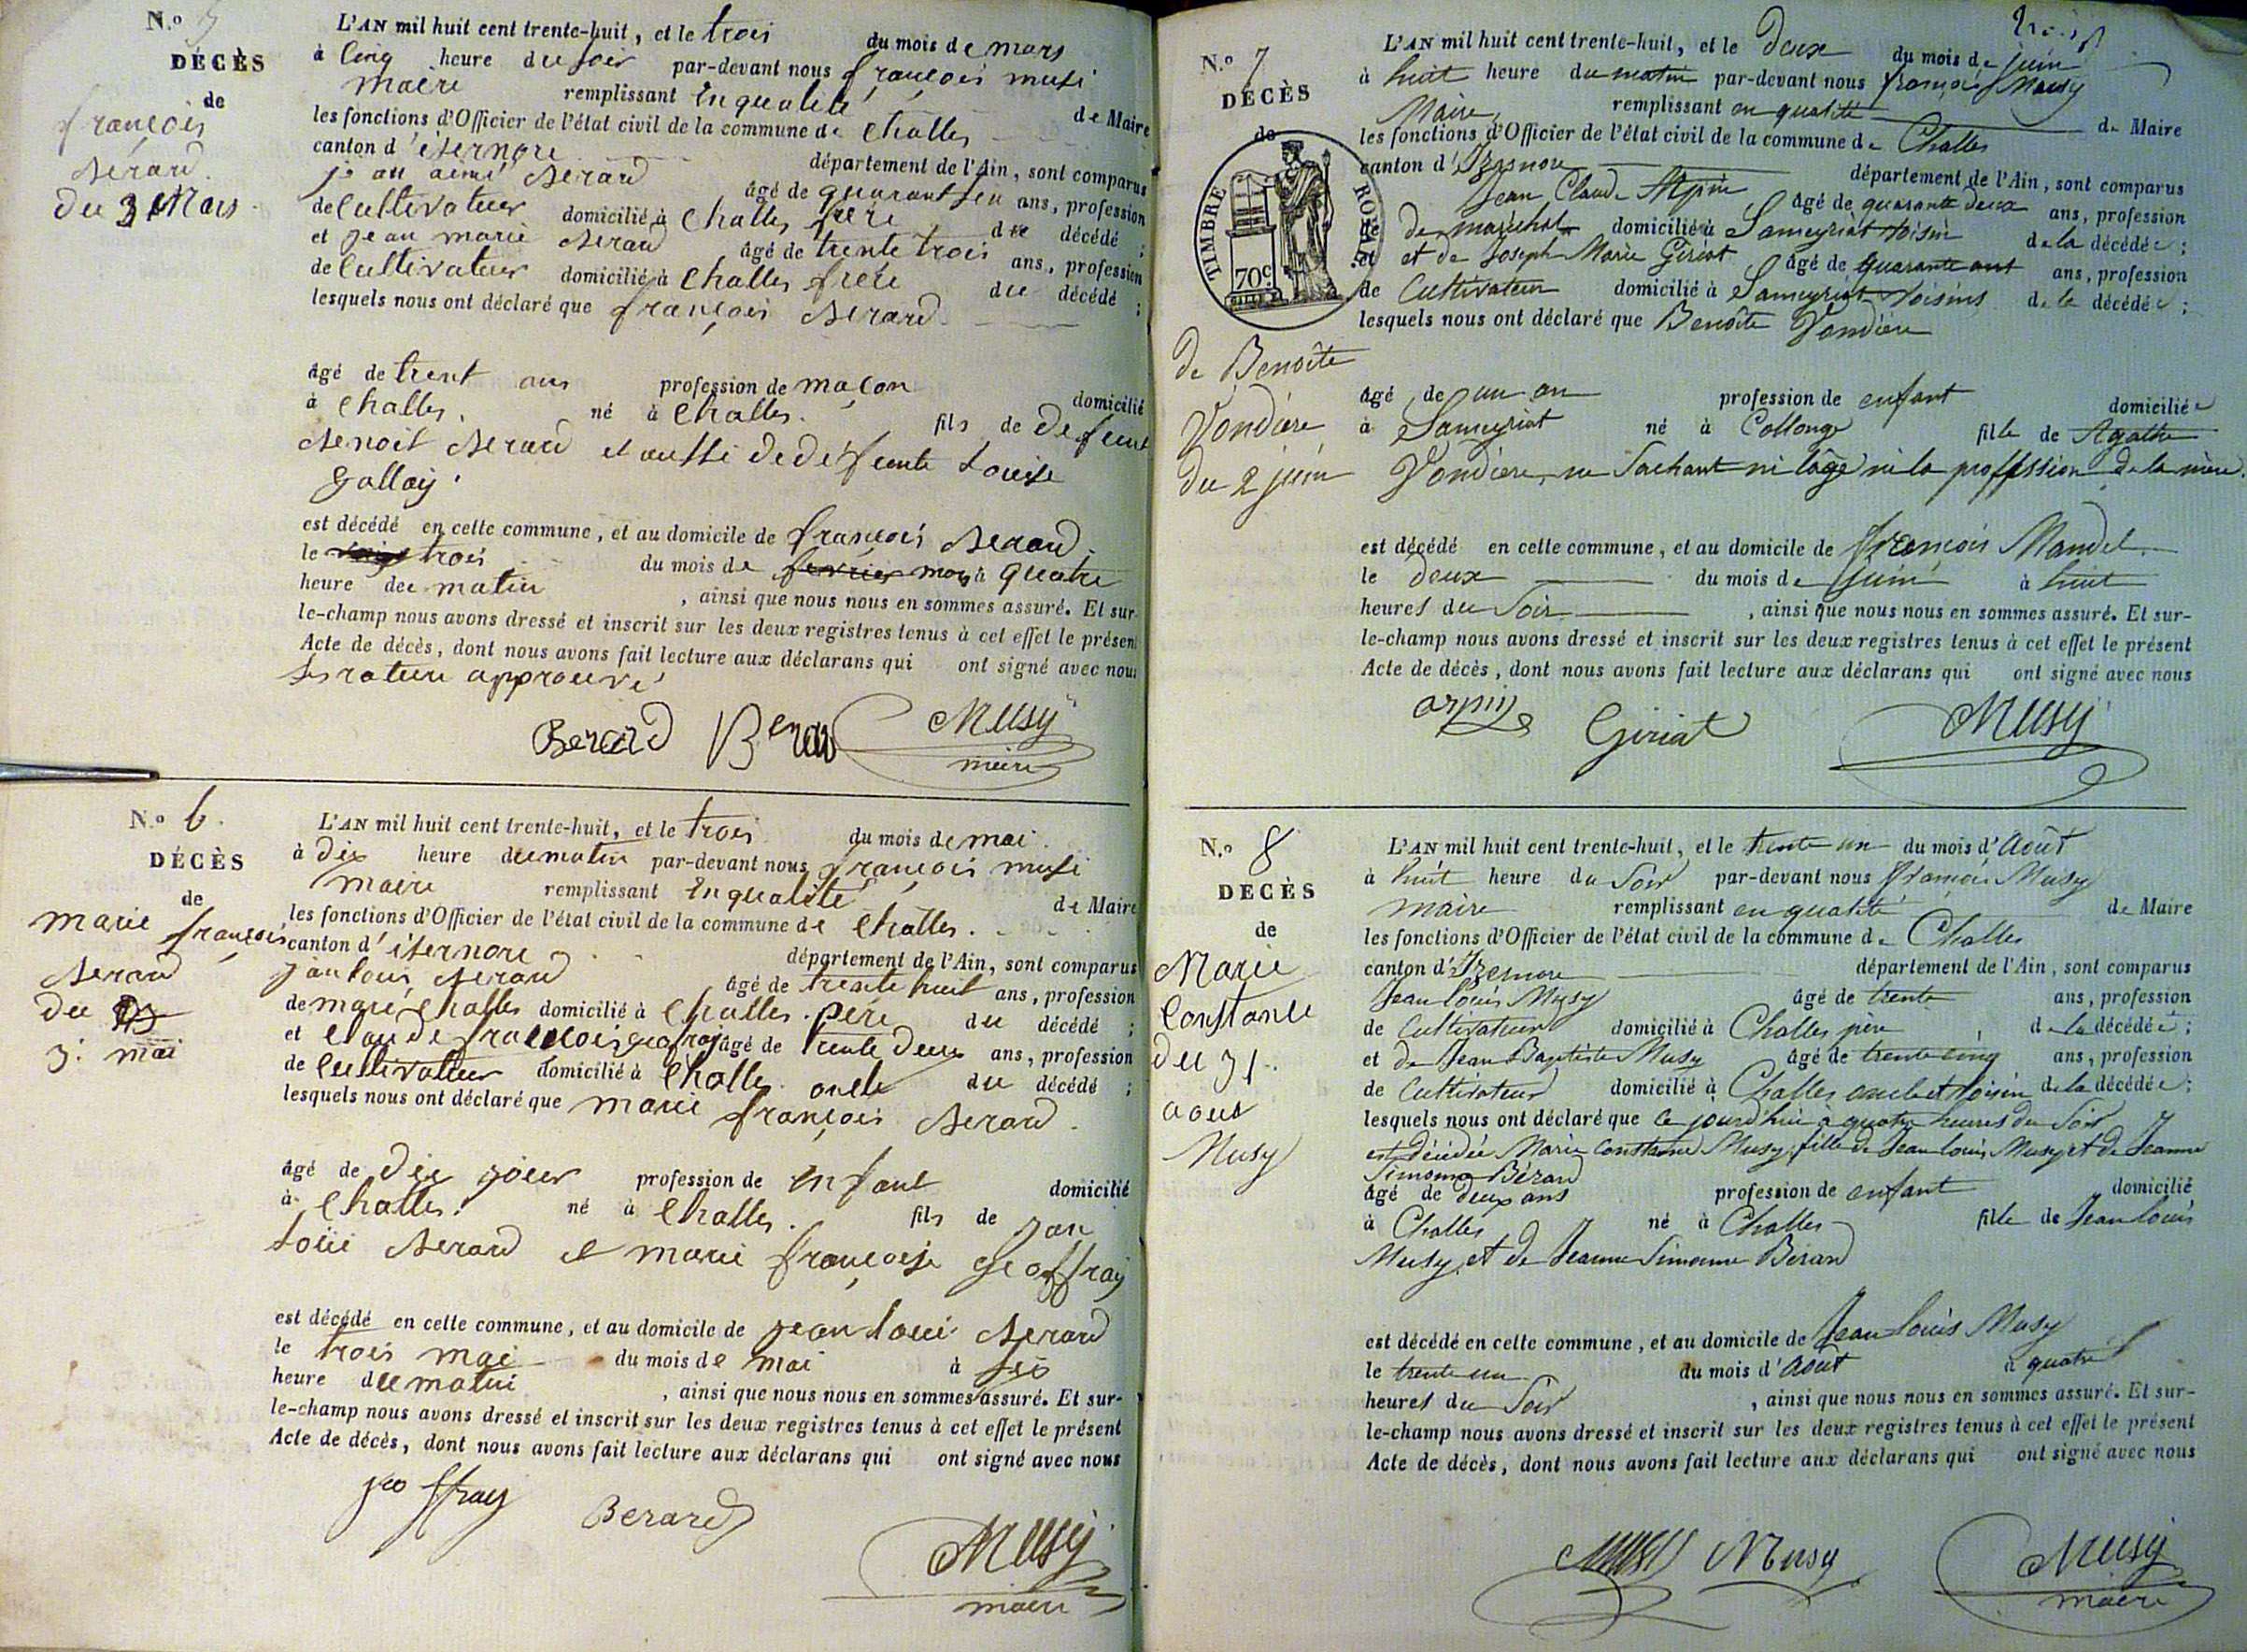 N.o 5
DÉCÈS
de
françois
Berard.
du 3 Mars
L'AN mil huit cent trente-huit, et le trois du mois de mars
à cinq heure du soir par-devant nous françois musi
maire remplissant en qualité de Maire
les fonctions d'Officier de l'état civil de la commune de Challes
canton d'isernore département de l'Ain, sont comparus
Berard âgé de quarant ans, profession
de cultivateur domicilié à Challes frere du décédé ;
et jean marie Berard âgé de trente trois ans, profession
de cultivateur domicilié à Challes frere du décédé ;
lesquels nous ont déclaré que françois Berard
âgé de trent ans profession de maçon domicilié
à Challes. né à Challes. fils de defeunt
Benoit Berard et aussi de défeunte Louise
Gallay.
est décédé en cette commune, et au domicile de françois Berard.
le trois du mois de fevrier mars à quatre
heure du matin , ainsi que nous nous en sommes assuré. Et sur-
le-champ nous avons dressé et inscrit sur les deux registres tenus à cet effet le présent
Acte de décès, dont nous avons fait lecture aux déclarans qui ont signé avec nous
rature approuvé
Berard Berar Musy
maire
N.o 6.
DÉCÈS
de
marie françois
Berard
du
3. mai
L'AN mil huit cent trente-huit, et le trois du mois de mai.
à dix heure du matin par-devant nous françois musi
maire remplissant en qualité de Maire
les fonctions d'Officier de l'état civil de la commune de Challes.
canton d'isernore département de l'Ain, sont comparus
jan louis Berard âgé de trente huit ans, profession
de maréchalle domicilié à Challes. père du décédé ;
et Claude françois geofray âgé de trente deux ans, profession
de cultivateur domicilié à Challes oncle du décédé ;
lesquels nous ont déclaré que marie françois Berard.
âgé de dix jour profession de enfant domicilié
à Challes. né à Challes. fils de jan
Louii Berard et marie françoise geoffray
est décédé en cette commune, et au domicile de jean louii Berard
le trois mai du mois de mai à six
heure du matin , ainsi que nous nous en sommes assuré. Et sur-
le-champ nous avons dressé et inscrit sur les deux registres tenus à cet effet le présent
Acte de décès, dont nous avons fait lecture aux déclarans qui ont signé avec nous
geoffray Berard Musy
maire
trois
N.o 7
DÉCÈS
de
TIMBRE ROYAL.
70c.
de Benoîte
Vondière
du 2 juin
L'AN mil huit cent trente-huit, et le deux du mois de juin
à huit heure du matin par-devant nous françois Musy
Maire, remplissant en qualité de Maire
les fonctions d'Officier de l'état civil de la commune de Challes
canton d'Izernore département de l'Ain, sont comparus
Jean Claude Arpin âgé de quarante deux ans, profession
de maréchal domicilié à Sameyriat voisin de la décédée ;
et de Joseph Marie Giriat âgé de quarante ans, profession
de Cultivateur domicilié à Sameyriat voisins de la décédée ;
lesquels nous ont déclaré que Benoîte Vondière
âgé de un an profession de enfant domiciliée
à Sameyriat né à Collonge fille de Agathe
Vondière, ne Sachant ni l'âge ni la proffession de la mère.
est décédé en cette commune, et au domicile de françois Mandel.
le deux du mois de juin à huit
heures du Soir , ainsi que nous nous en sommes assuré. Et sur-
le-champ nous avons dressé et inscrit sur les deux registres tenus à cet effet le présent
Acte de décès, dont nous avons fait lecture aux déclarans qui ont signé avec nous
arpin Giriat Musy
N.o 8
DECÈS
de
Marie
Constance
du 31.
aout
Musy
L'AN mil huit cent trente-huit, et le trente un du mois d'Août
à huit heure du Soir par-devant nous françois Musy
maire remplissant en qualité de Maire
les fonctions d'Officier de l'état civil de la commune de Challes
canton d'Izernore département de l'Ain, sont comparus
Jean louis Musy âgé de trente ans, profession
de Cultivateur domicilié à Challes père de la décédée ;
et de Jean Baptiste Musy âgé de trente cinq ans, profession
de Cultivateur domicilié à Challes oncle et voisin de la décédée ;
lesquels nous ont déclaré que ce jourd'hui à quatre heures du Soir
est décédée Marie Constance Musy, fille de Jean louis Musy et de Jeanne
Simonne Bérard
âgé de deux ans profession de enfant domicilié
à Challes né à Challes fille de Jean louis
Musy et de Jeanne Simonne Berard
est décédé en cette commune, et au domicile de Jean louis Musy
le trente un du mois d'Août à quatre
heures du Soir , ainsi que nous nous en sommes assuré. Et sur-
le-champ nous avons dressé et inscrit sur les deux registres tenus à cet effet le présent
Acte de décès, dont nous avons fait lecture aux déclarans qui ont signé avec nous
Musy Musy Musy
maire